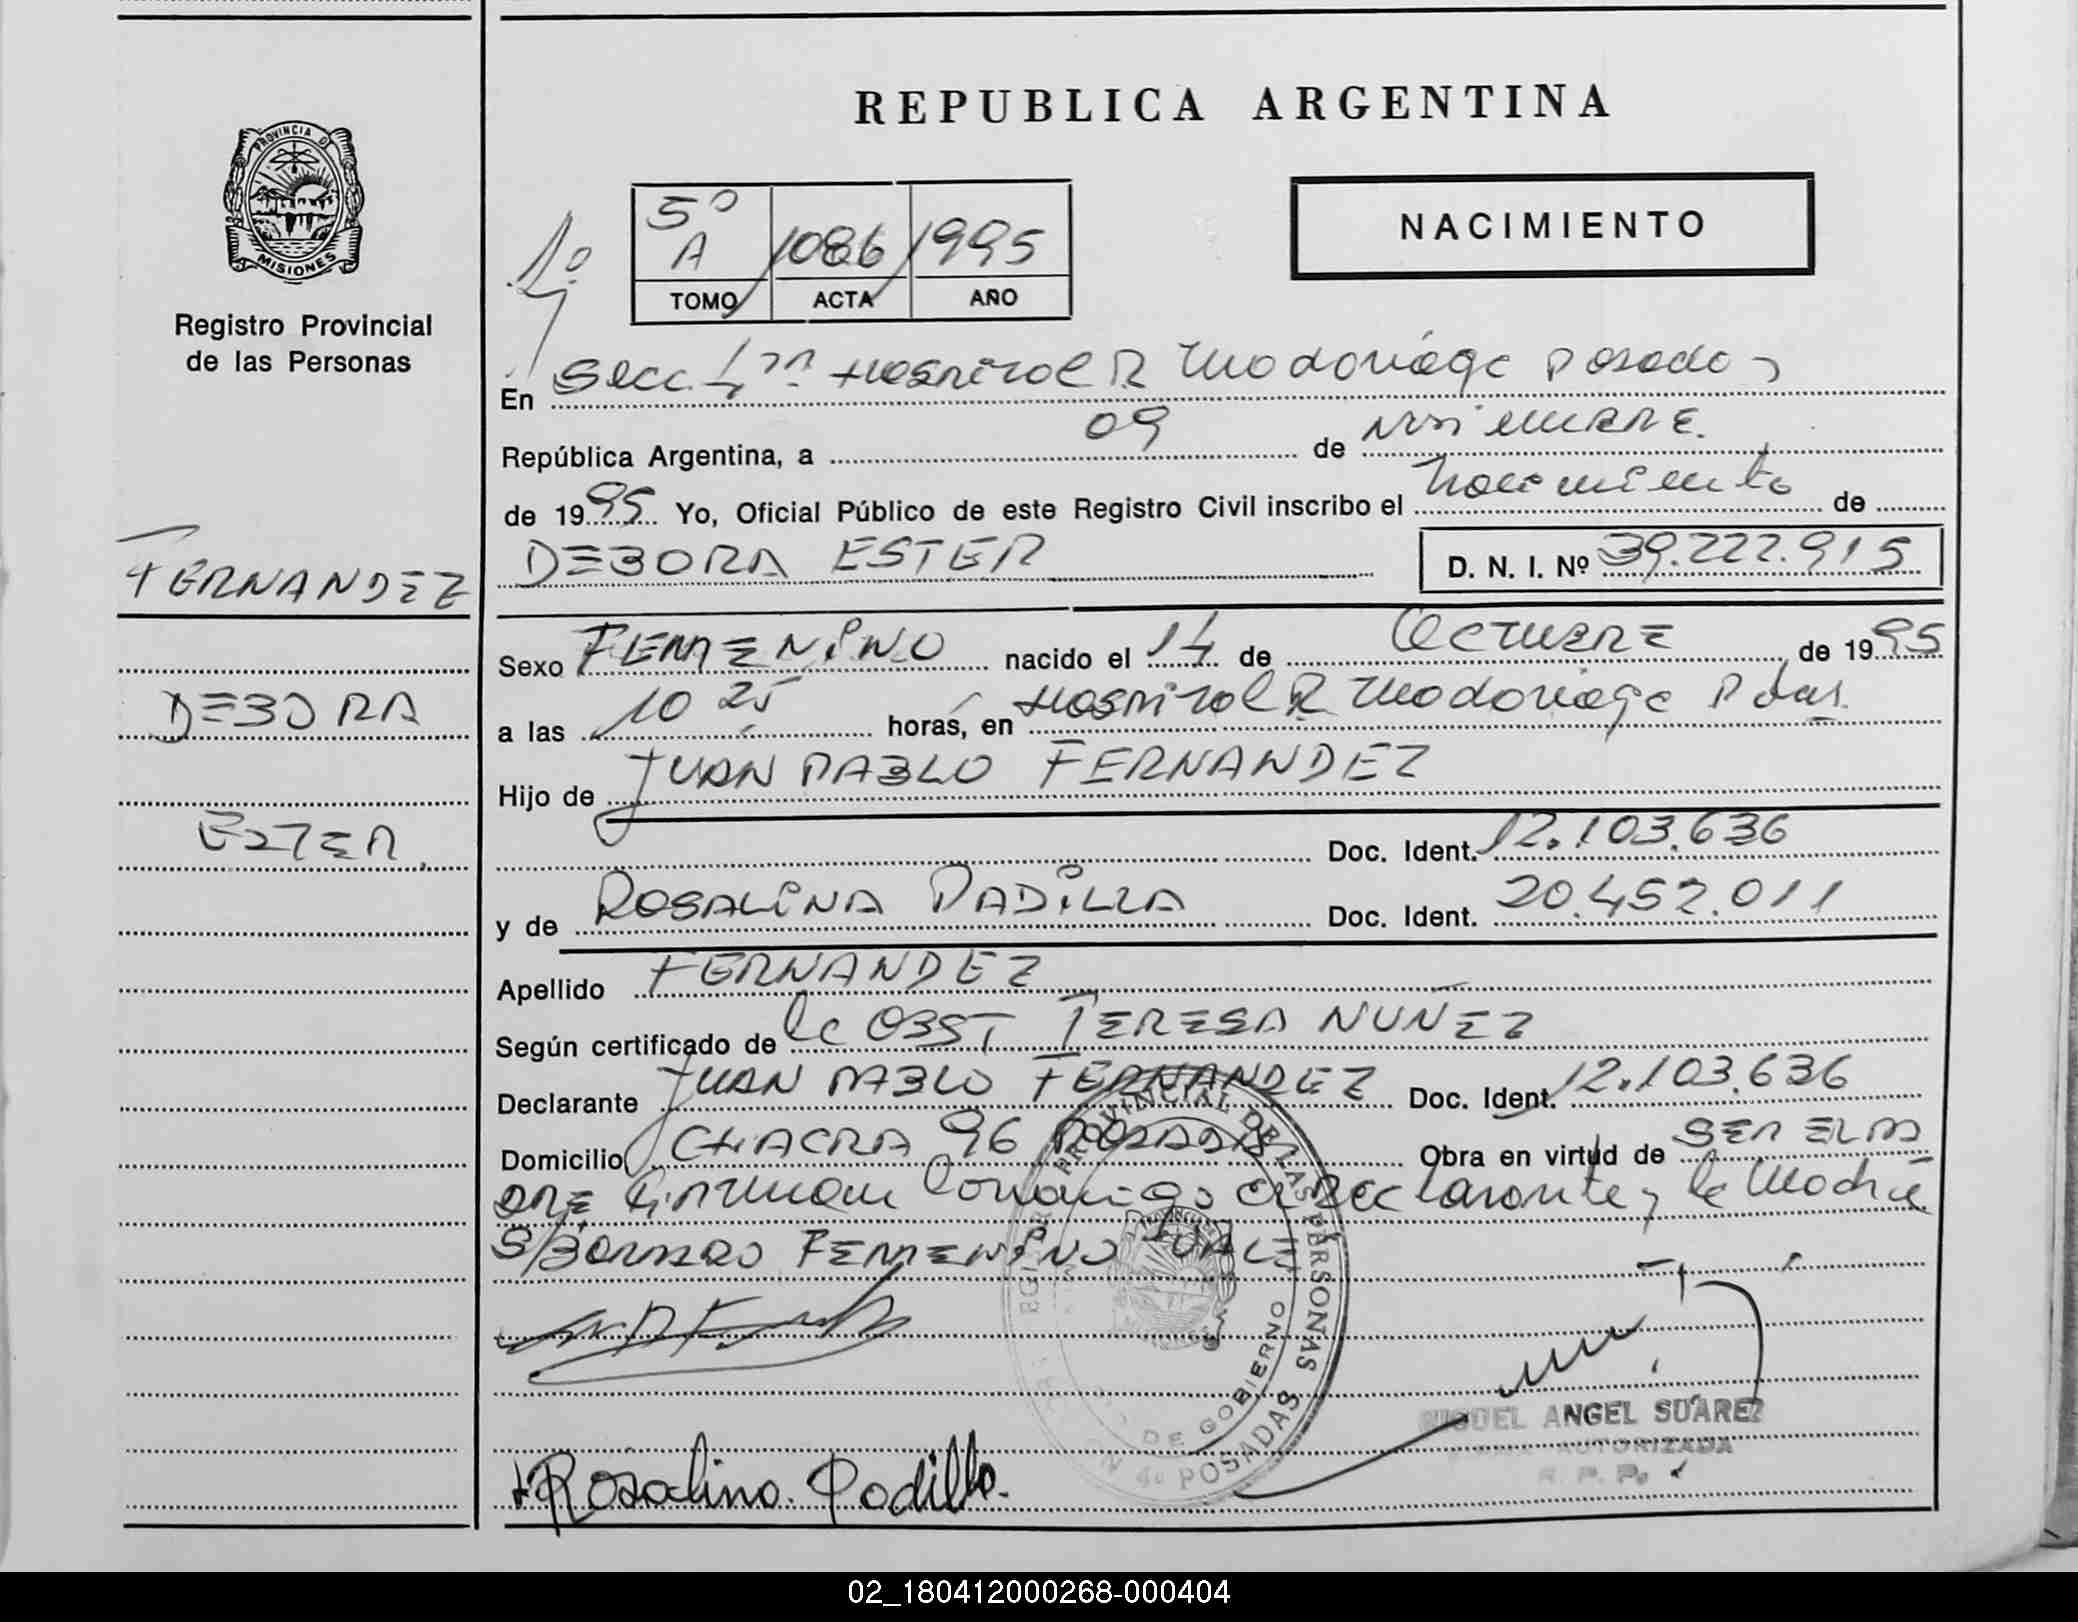 REPUBLICA ARGENTINA
PROVINCIA DE
MISIONES
Registro Provincial
de las Personas
NACIMIENTO
1º
5º
A 1086 1995
TOMO ACTA AÑO
En Secc 4ta Hospital R Madariaga Posadas
República Argentina, a 09 de Noviembre.
de 1995 Yo, Oficial Público de este Registro Civil inscribo el nacimiento de
DEBORA ESTER D. N. I. Nº 39.222.915
FERNANDEZ
DEBORA
ESTER.
Sexo FEMENINO nacido el 14 de OCTUBRE de 1995
a las 10 25 horas, en Hospital R Madariaga Pdas.
Hijo de JUAN PABLO FERNANDEZ
Doc. Ident. 12.103.636
y de ROSALINA PADILLA Doc. Ident. 20.452.011
Apellido FERNANDEZ
Según certificado de la OBST TERESA NUÑEZ
Declarante JUAN PABLO FERNANDEZ Doc. Ident. 12.103.636
Domicilio CHACRA 96 POSADAS Obra en virtud de SER EL PA
DRE Firman Conmigo el Declarante y la Madre
S/Borrado FEMENINO VALE
REGISTRO PROVINCIAL DE LAS PERSONAS
DE GOBIERNO
4º POSADAS
MIGUEL ANGEL SUAREZ
FIRMA AUTORIZADA
R. P. P.
Rosalina Padilla.
02_180412000268-000404